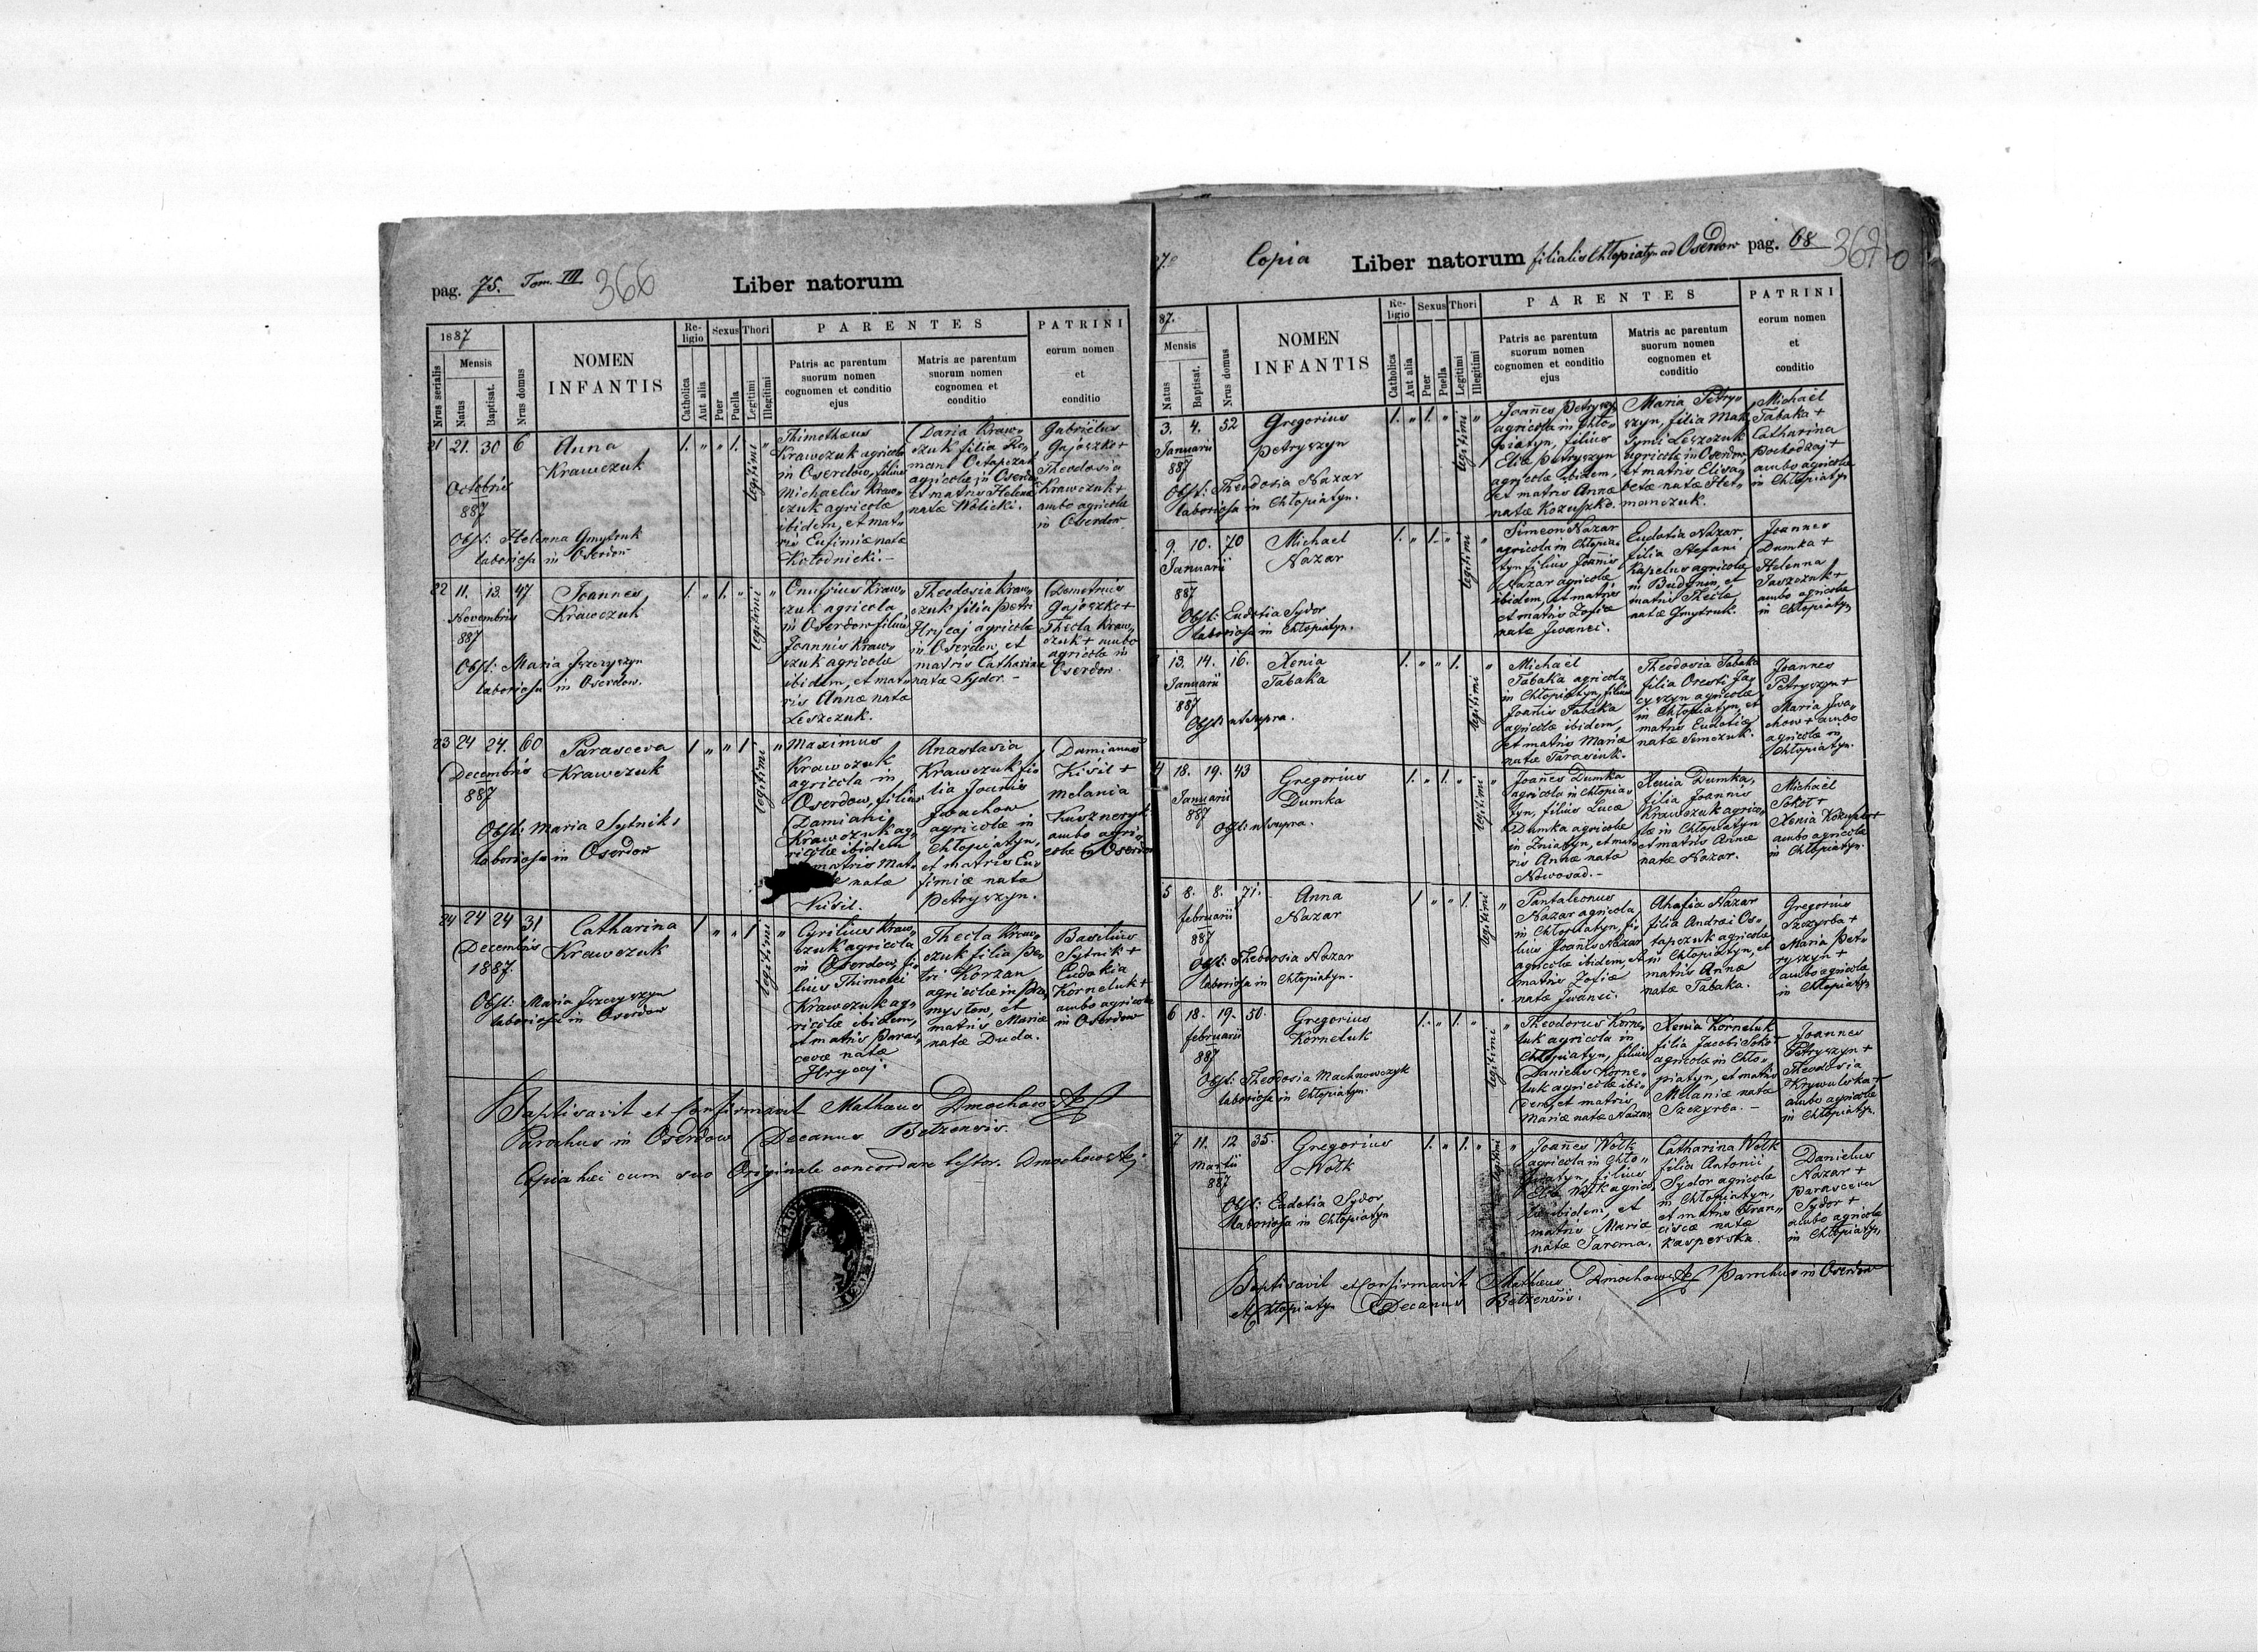 pag. 75. Tom. III 366 Liber natorum
1887
Mensis
Nrus serialis
Natus
Baptisat.
Nrus domus
NOMEN
INFANTIS
Re-
ligio
Catholica
Aut alia
Sexus
Puer
Puella
Thori
Legitimi
Illegitimi
PARENTES
Patris ac parentum
suorum nomen
cognomen et conditio
ejus
Matris ac parentum
suorum nomen
cognomen et
conditio
PATRINI
eorum nomen
et
conditio
21 21. 30 6
Octobris
887
Anna
Krawczuk
Obst: Helenna Gmytruk
laboriosa in Oserdow
1. " " 1. legitimi "
Thimotheus
Krawczuk agricola
in Oserdow, filius
Michaelis Kraw„
czuk agricolæ
ibidem, et mat„
ris Eufimiæ natæ
Kołodnicki.–
Daria Kraw„
czuk filia Ro„
mani Ostapczuk
agricolæ in Oserdow
et matris Helenæ
natæ Wolicki.
Gabrielus
Gajoszko +
Theodosia
Krawczuk +
ambo agricolæ
in Oserdow.
22 11. 13. 47
Novembris
887
Joannes
Krawczuk
Obst: Maria Jszczyszyn
laboriosa in Oserdow.
1. " 1. " legitimi "
Onufrius Kraw„
czuk agricola
in Oserdow filius
Joannis Kraw„
czuk agricolæ
ibidem, et mat„
ris Annæ natæ
Leszczuk.
Theodosia Kraw„
czuk filia Petri
Hrycaj agricolæ
in Oserdow, et
matris Catharinæ
natæ Sydor.–
Demetrius
Gajoszko +
Thecla Kraw„
czuk + ambo
agricolæ in
Oserdow.
23 24 24. 60
Decembris
887
Parasceva
Krawczuk
Obst: Maria Sytnik,
laboriosa in Oserdow
1 " " 1 legitimi "
Maximus
Krawczuk
agricola in
Oserdow, filius
Damiani
Krawczuk ag„
ricolæ ibidem
matris Mat„
natæ
Kisil.
Anastasia
Krawczuk fi„
lia Joannis
Jwachow
agricolæ in
Chłopiatyn,
et matris Eu„
fimiæ natæ
Petryszyn.
Damianus
Kisil +
Melania
Kuszneryk
ambo agri„
colæ Oserdow
24 24 24 31
Dezembris
1887.
Catharina
Krawczuk
Obst: Maria Jszczyszyn
laboriosa in Oserdow
1 " " 1 legitimi "
Cyrilius Kraw„
czuk agricola
in Oserdow, fi„
lius Thimotei
Krawczuk ag„
ricolæ ibidem,
et matris Paras„
cevæ natæ
Hrycaj.
Thecla Kraw„
czuk filia Pe„
tri Korzan
agricolæ in Prze„
mysłow, et
matris Mariæ
natæ Duda.
Basilius
Sytnik +
Eudokia
Korneluk +
ambo agricolæ
in Oserdow
Baptisavit et Confirmavit Mathæus Dmochowski
Parochus in Oserdow Decanus Bełzensis.
Copia hæc cum suo Originale concordare testor. Dmochowski
Copia Liber natorum filialis Chłopiatyn ad Oserdow pag. 68
87.
Mensis
Natus
Baptisat.
Nrus domus
NOMEN
INFANTIS
Re-
ligio
Catholica
Aut alia
Sexus
Puer
Puella
Thori
Legitimi
Illegitimi
PARENTES
Patris ac parentum
suorum nomen
cognomen et conditio
ejus
Matris ac parentum
suorum nomen
cognomen et
conditio
PATRINI
eorum nomen
et
conditio
3. 4. 52
Januarii
887
Gregorius
Petryszyn
Obst: Theodosia Nazar
laboriosa in Chłopiatyn.
1. " 1. " legitimi "
Joañes Petryszyn
agricola in Chło„
piatyn, filius
Eliæ Petryszyn
agricolæ ibidem,
et matris Annæ
natæ Kozuszko.
Maria Petry„
szyn, filia Mak„
symi Leszczuk
agricolæ in Oserdow
et matris Elisa„
betæ natæ Het„
manczuk.
Michaël
Tabaka +
Catharina
Pochodzaj +
ambo agricolæ
in Chłopiatyn
9. 10. 70
Januarii
887
Michael
Nazar
Obst: Eudotia Sydor
laboriosa in Chłopiatyn.
1. " 1. " legitimi "
Simeon Nazar
agricola in Chłopia„
tyn filius Joannis
Nazar agricolæ
ibidem, et matris
et matris Zofiæ
natæ Jwanei.
Eudotia Nazar,
filia Stefani
Kapelus agricolæ
in Budynin, et
matris Theclæ
natæ Gmytruk.
Joannes
Dumka +
Helenna
Saszczuk +
ambo agricolæ
in Chłopiatyn
13. 14. 16.
Januarii
887
Xenia
Tabaka
Obst: ut supra.
1. " " 1. legitimi "
Michaël
Tabaka agricola
in Chłopiatyn, filius
Joañis Tabaka
agricolæ ibidem,
et matris Mariæ
natæ Tarasiuk.
Theodosia Tabaka
filia Oresti Ja„
cyszyn agricolæ
in Chłopiatyn, et
matris Eudotiæ
natæ Semczuk.
Joannes
Petryszyn +
Maria Jwa„
chow + ambo
agricolæ in
Chłopiatyn.
4 18. 19. 43
Januarii
887
Gregorius
Dumka
Obst: ut supra.
1. " 1. " legitimi "
Joañes Dumka
agricola in Chłopia„
tyn, filius Lucæ
Dumka agricolæ
in Zniatyn, et mat„
ris Annæ natæ
Nowosad.–
Xenia Dumka,
filia Joannis
Krawczuk agrico„
læ in Chłopiatyn
et matris Annæ
natæ Nazar.
Michaël
Sokoł +
Xenia Kozuszko +
ambo agricolæ
in Chłopiatyn.
5 8. 8. 71.
februarii
887
Anna
Nazar
Obst: Theodosia Nazar
laboriosa in Chłopiatyn.
1 " " 1. legitimi "
Pantaleonus
Nazar agricola
in Chłopiatyn, fi„
lius Joañis Nazar
agricolæ ibidem, et
matris Zofiæ
natæ Jwanei.
Ahafia Nazar
filia Andrei Os„
tapczuk agricolæ
in Chłopiatyn, et
matris Annæ
natæ Tabaka.
Gregorius
Szczyrba +
Maria Pet„
ryszyn +
ambo agricolæ
in Chłopiatyn
6 18. 19. 50.
februarii
887
Gregorius
Korneluk
Obst: Theodosia Machnowczyk
laboriosa in Chłopiatyn.
1. " 1. " legitimi "
Theodorus Korne„
luk agricola in
Chłopiatyn, filius
Danielis Korne„
luk agricolæ ibi„
dem, et matris
Mariæ natæ Nazar
Xenia Korneluk
filia Jacobi Sokoł
agricolæ in Chło„
piatyn, et matris
Melaniæ natæ
Szczyrba.–
Joannes
Petryszyn +
Theodosia
Krywulska +
ambo agricolæ
in Chłopiatyn.
7 11. 12 35.
Martii
887
Gregorius
Wołk
Obst: Eudotia Sydor
laboriosa in Chłopiatyn
1. " 1. " legitimi "
Joañes Wołk
agricola in Chło„
piatyn, filius
Eliæ Wołk agrico„
læ ibidem, et
matris Mariæ
natæ Jarema.
Catharina Wołk
filia Antonii
Sydor agricolæ
in Chłopiatyn,
et matris Fran„
ciscæ natæ
Kasperska.
Danielus
Nazar +
Parasceva
Sydor +
ambo agricolæ
in Chłopiatyn,
Baptisavit et Confirmavit Mathæus Dmochowski Parochus in Oserdow
et Chłopiatyn Decanus Bełzensis.